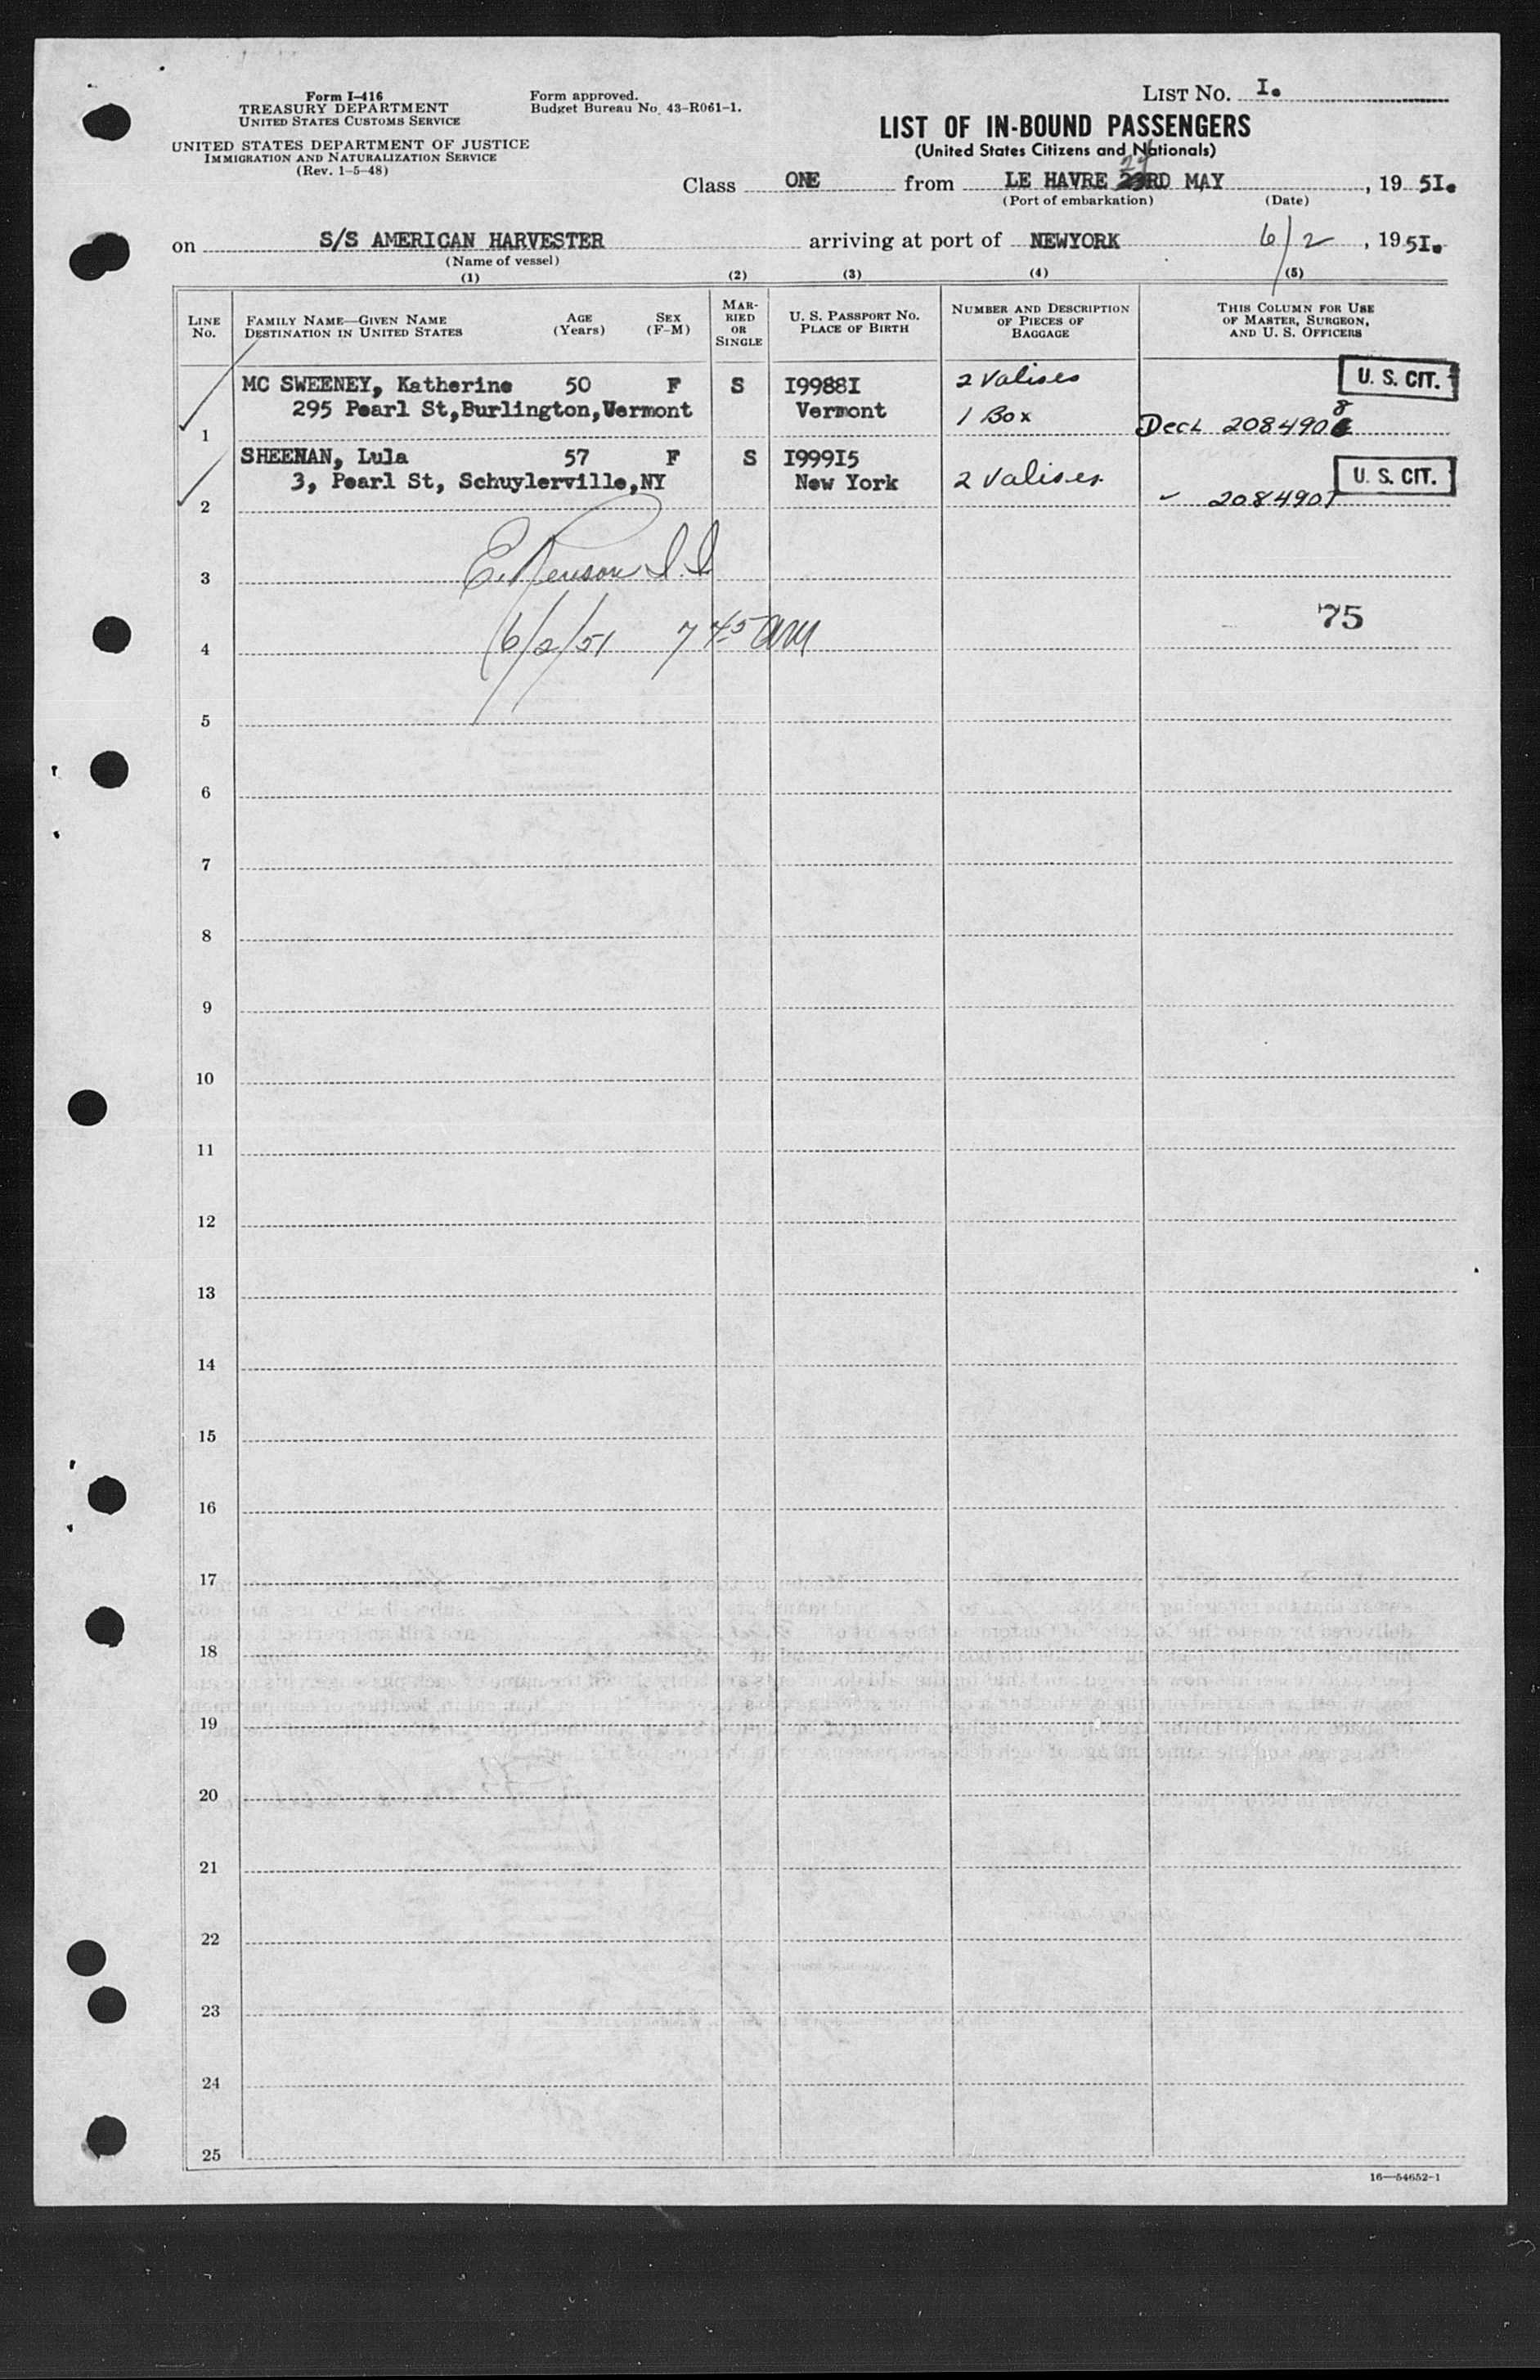 Form I-416
TREASURY DEPARTMENT
UNITED STATES CUSTOMS SERVICE
UNITED STATES DEPARTMENT OF JUSTICE
IMMIGRATION AND NATURALIZATION SERVICE
(Rev. 1-5-48)
Form approved.
Budget Bureau No. 43-R061-1.
LIST NO. I.
LIST OF IN-BOUND PASSENGERS
(United States Citizens and Nationals)
24
Class ONE from LE HAVRE 23RD MAY , 19 5I.
(Port of embarkation) (Date)
on S/S AMERICAN HARVESTER arriving at port of NEWYORK 6/2 , 19 5I.
(Name of vessel)
(1) (2) (3) (4) (5)
LINE No. FAMILY NAME—GIVEN NAME DESTINATION IN UNITED STATES AGE (Years) SEX (F-M) MARRIED OR SINGLE U. S. PASSPORT NO. PLACE OF BIRTH NUMBER AND DESCRIPTION OF PIECES OF BAGGAGE THIS COLUMN FOR USE OF MASTER, SURGEON, AND U. S. OFFICERS
MC SWEENEY, Katherine 50 F S I9988I 2 Valises U. S. CIT.
295 Pearl St,Burlington,Vermont Vermont 1 Box Decl 2084908
1
SHEENAN, Lula 57 F S I999I5 U. S. CIT.
3, Pearl St, Schuylerville,NY New York 2 Valises 2084907
2
3 E. I.I.
75
4 6/2/51 7 45 AM
5
6
7
8
9
10
11
12
13
14
15
16
17
18
19
20
21
22
23
24
25
16—54652-1